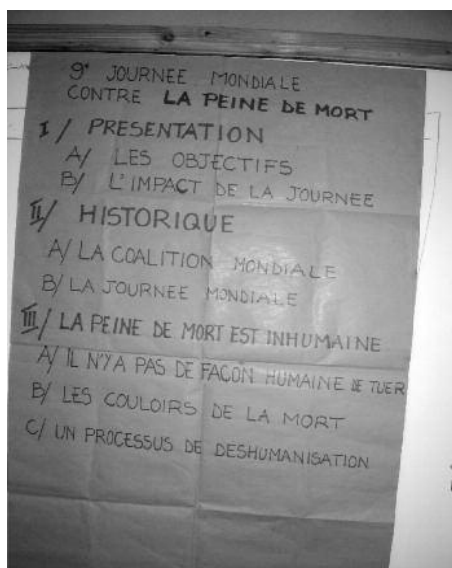 9e JOURNEE MONDIALE
CONTRE LA PEINE DE MORT
I/ PRESENTATION
A/ LES OBJECTIFS
B/ L'IMPACT DE LA JOURNEE
II/ HISTORIQUE
A/ LA COALITION MONDIALE
B/ LA JOURNEE MONDIALE
III/ LA PEINE DE MORT EST INHUMAINE
A/ IL N'Y A PAS DE FAÇON HUMAINE DE TUER
B/ LES COULOIRS DE LA MORT
C/ UN PROCESSUS DE DESHUMANISATION